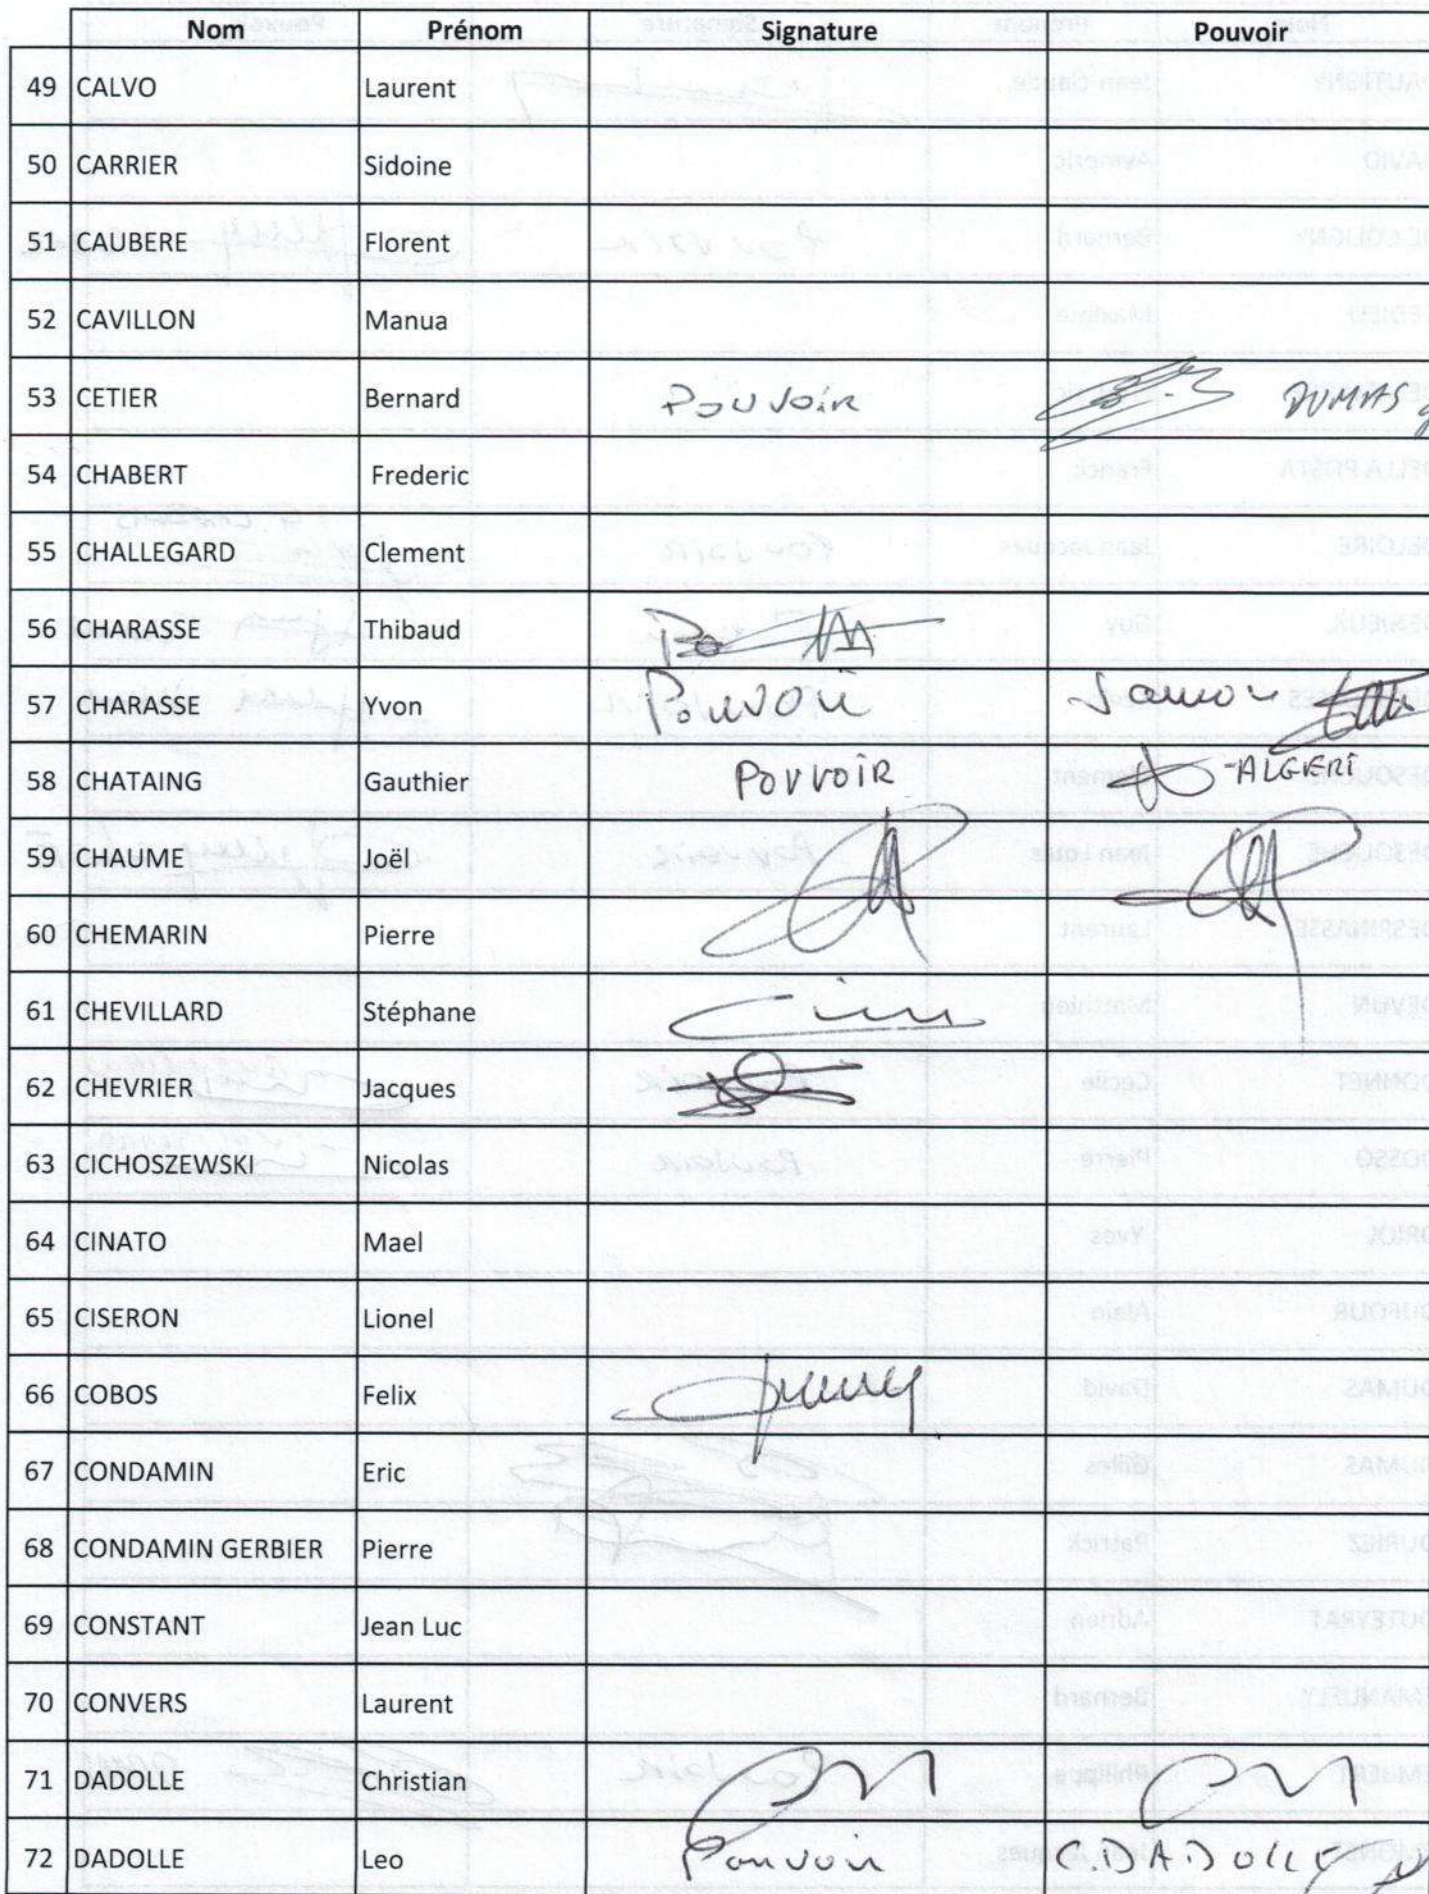 Nom Prénom Signature Pouvoir
49 CALVO Laurent
50 CARRIER Sidoine
51 CAUBERE Florent
52 CAVILLON Manua
53 CETIER Bernard Pouvoir DUMAS
54 CHABERT Frederic
55 CHALLEGARD Clement
56 CHARASSE Thibaud
57 CHARASSE Yvon Pouvoir
58 CHATAING Gauthier POUVOIR ALGERI
59 CHAUME Joël
60 CHEMARIN Pierre
61 CHEVILLARD Stéphane
62 CHEVRIER Jacques
63 CICHOSZEWSKI Nicolas
64 CINATO Mael
65 CISERON Lionel
66 COBOS Felix
67 CONDAMIN Eric
68 CONDAMIN GERBIER Pierre
69 CONSTANT Jean Luc
70 CONVERS Laurent
71 DADOLLE Christian
72 DADOLLE Leo Pouvoir C.DADOLLE